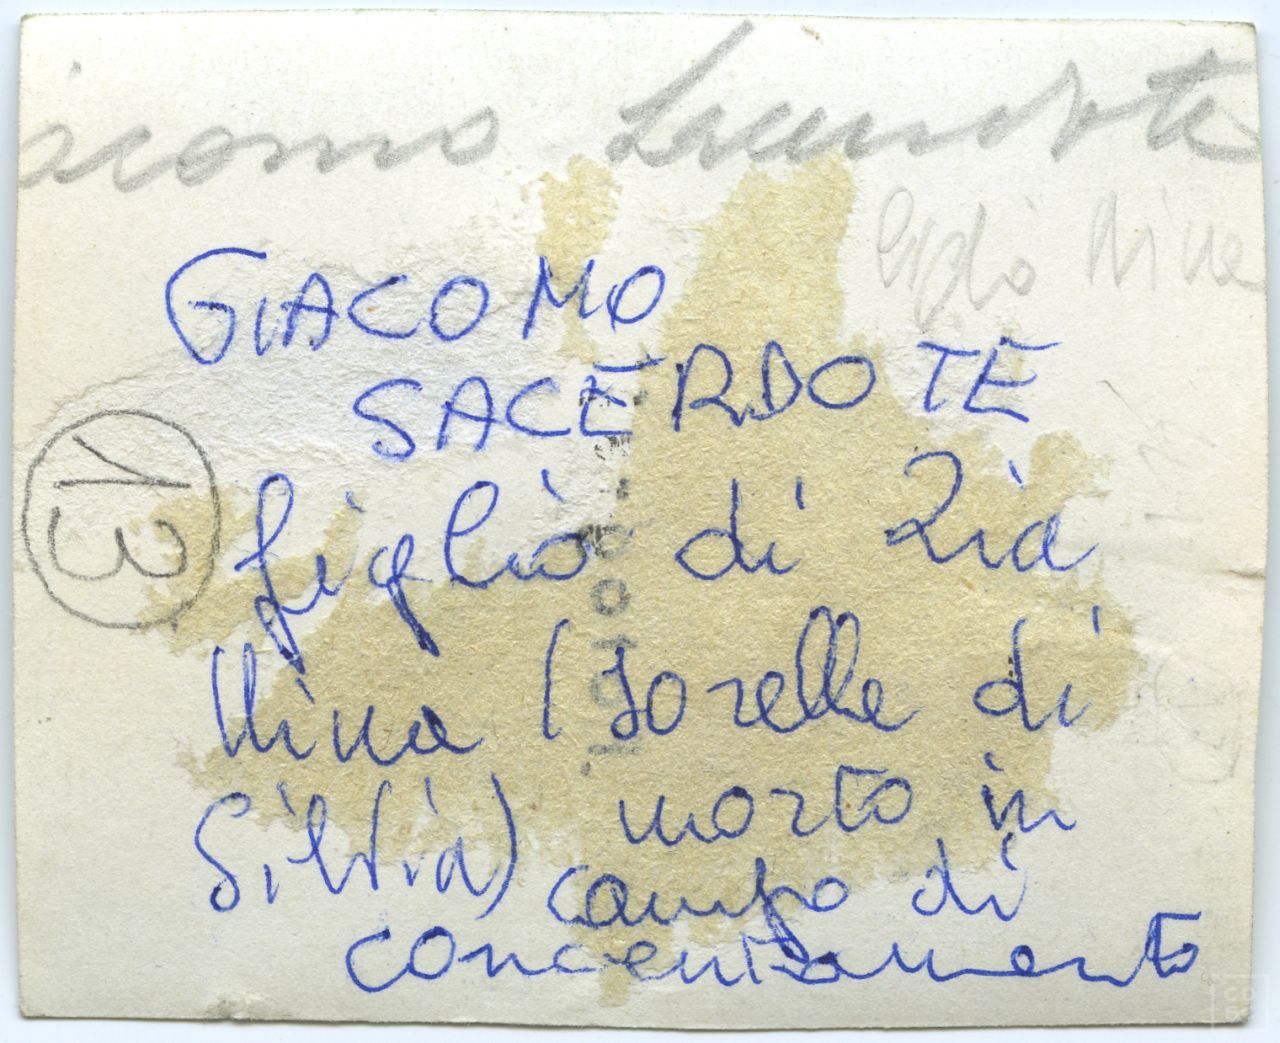 iacomo Sacerdote
figlio Nina
GIACOMO
SACERDOTE
13
figlio di Zia
Nina (sorella di
Silvia) morto in
campo di
concentramento